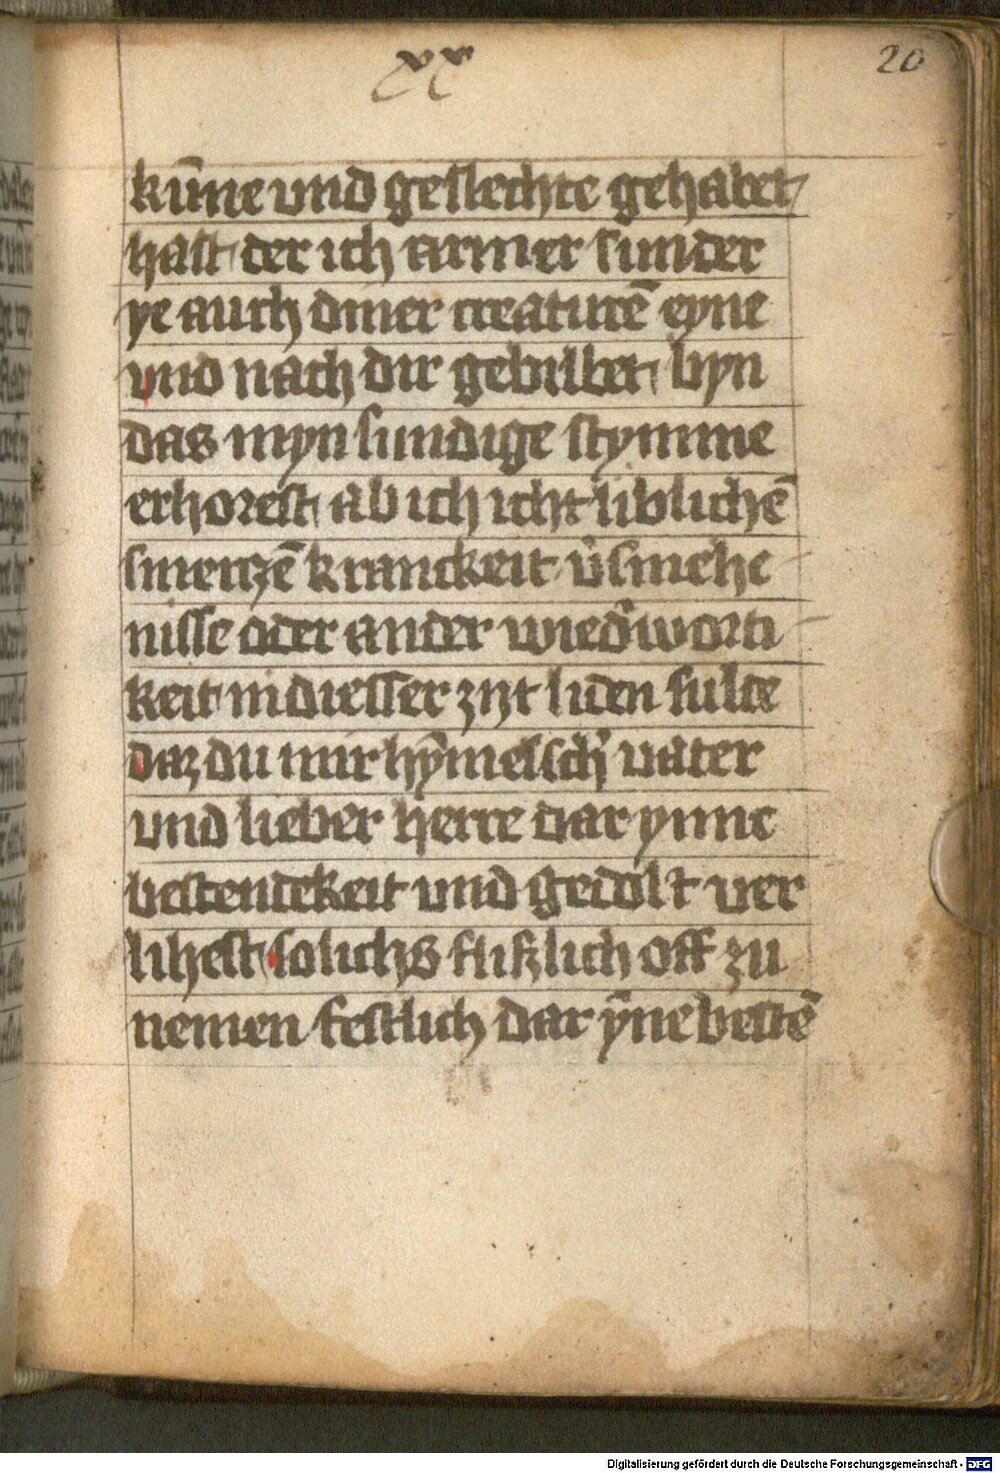 xx
20
kūne und geslechte gehabet
hast der ich armer sunder
ye auch diner creaturē eyne
und nach dir gebildet byn
das myn sundige stymme
erhorest ab ich icht liblichē
smerczē kranckeit v̉smehe
nisse oder ander wied̉worti
keit in diesser zijt liden sulde
daz du mir hȳmelsch̉ vater
und lieber herre dar ynne
bestendekeit und gedolt ver
lihest solichs fliszlich off zu
nemen festlich dar ȳne bestē
Digitalisierung gefördert durch die Deutsche Forschungsgemeinschaft - DFG